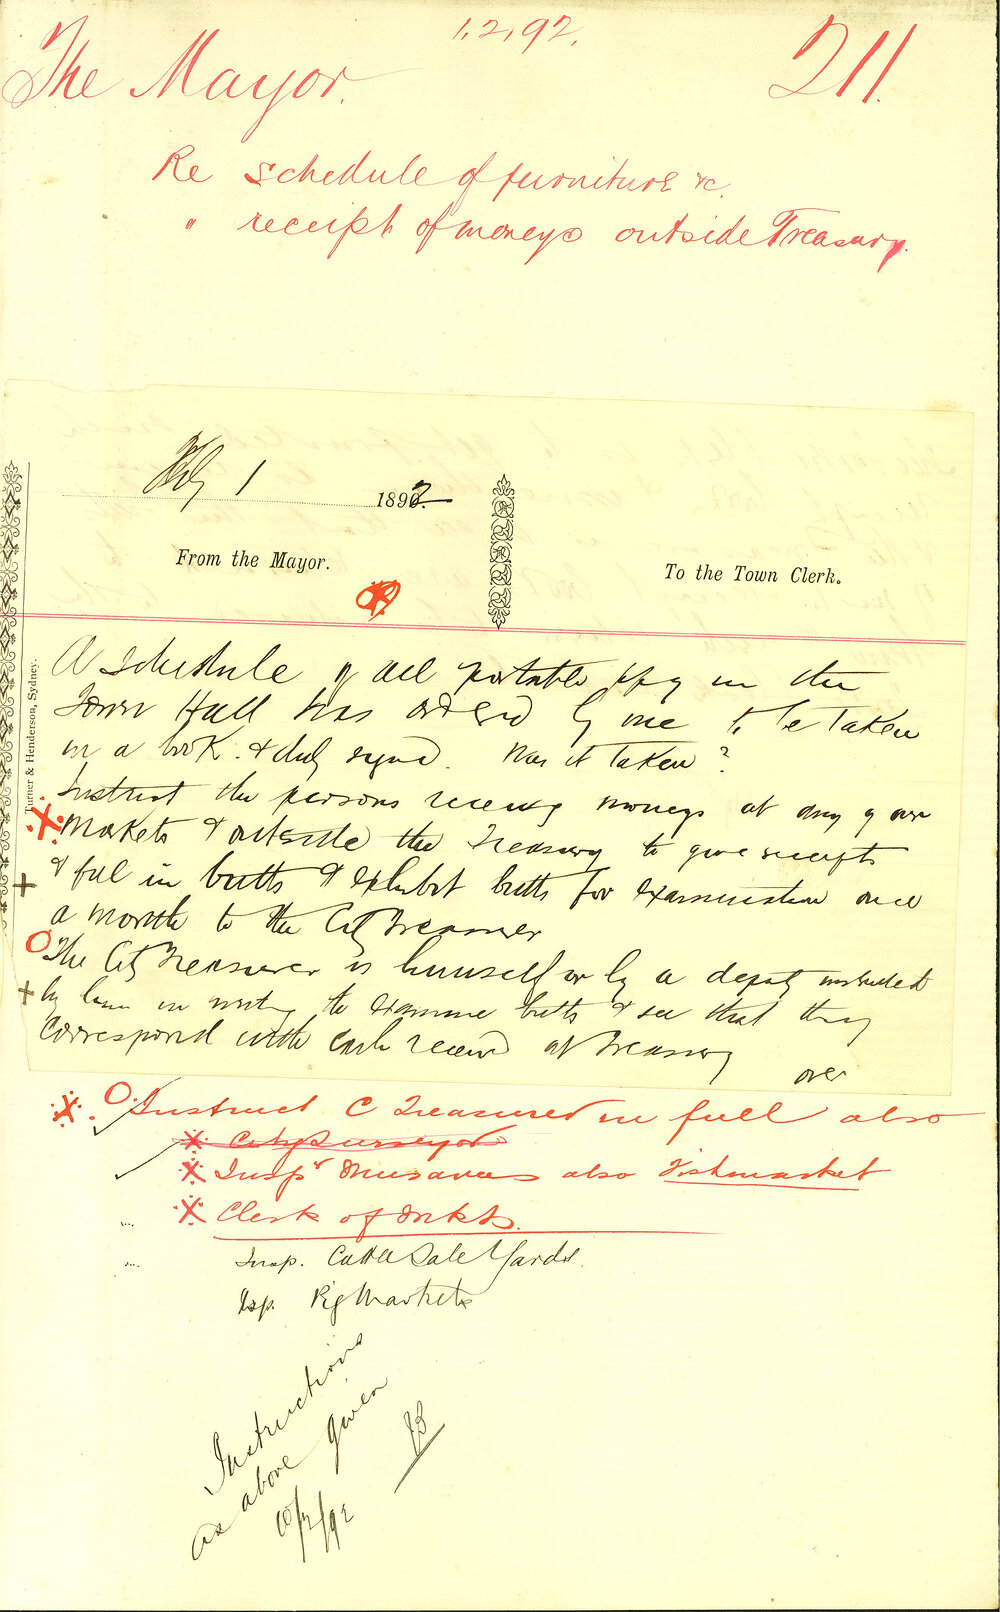 1.2.92.
The Mayor. 211.
Re Schedule of furniture &c.
" receipt of moneys outside Treasury.
Feby 1 1892
From the Mayor.
To the Town Clerk.
Turner & Henderson, Sydney.
A Schedule of all portable ppy in the
Town Hall was ordered by me to be taken
in a book & duly signed. Was it taken?
Instruct the persons receivg moneys at any of our
Markets & outside the Treasury to give receipts
& fill in butts & exhibit butts for examination once
a month to the City Treasurer
The City Treasurer is himself or by a deputy instructed
by him in writing to examine butts & see that they
correspond with cash received at Treasury
over
Instruct C Treasurer in full also
City Surveyor
Inspr Nuisances also Fishmarket
Clerk of Mkts.
Insp. Cattle Sale Yards.
Isp. Pig Markets
Instructions
as above given
10/2/92